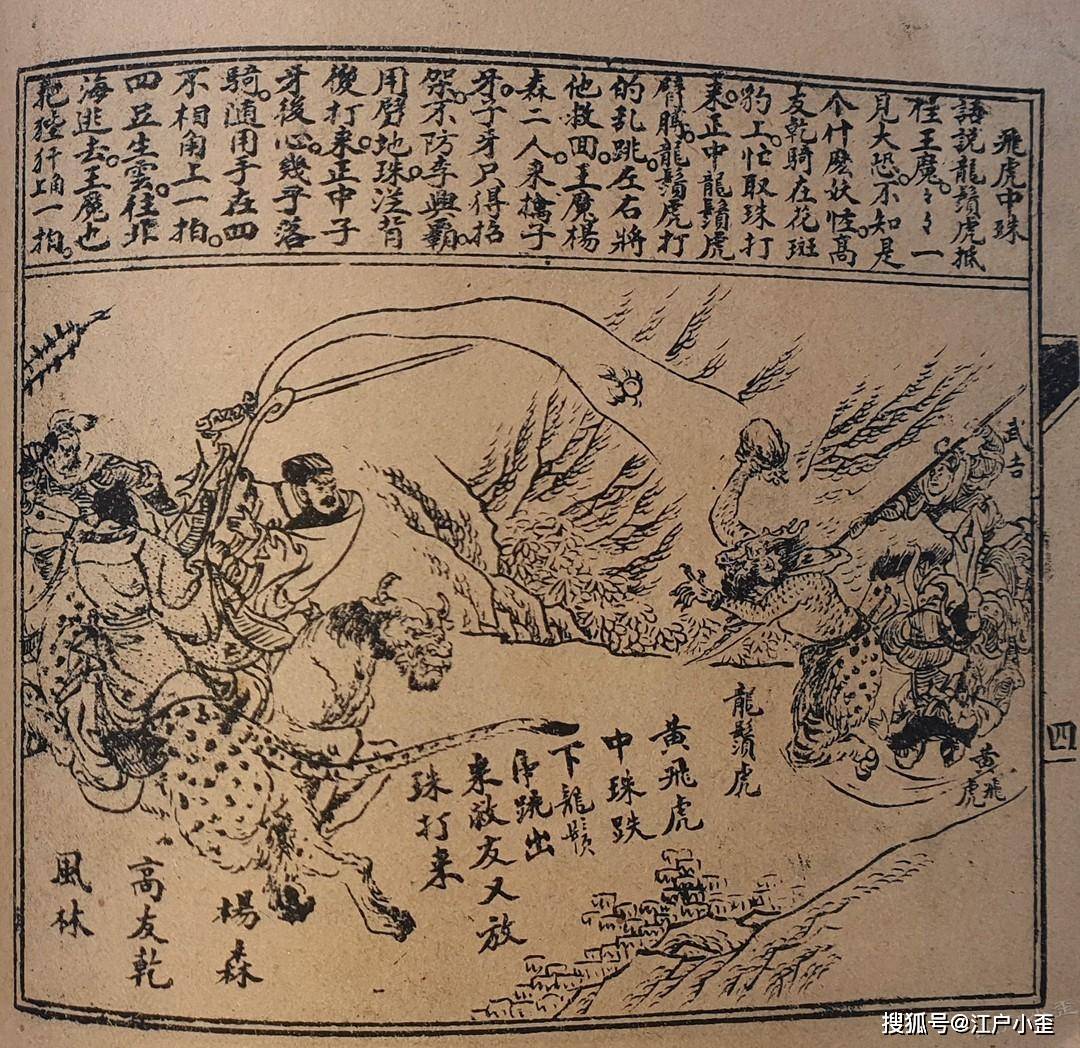 飛虎中珠
話說龍鬚虎抵
桎王魔。々々一
見大恐。不知是
个什麽妖怪。高
友乾騎在花斑
豹上。忙取珠打
來。正中龍鬚虎
臂膊。龍鬚虎打
的乱跳。左右將
他救囬。王魔楊
森二人来擒子
牙。子牙只得招
架。不防李興霸
用劈地珠從背
後打来。正中子
牙後心。幾乎落
騎。随用手在四
不相角上一拍。
四足生雲。往北
海逃去。王魔也
把狴犴角上一拍。
武吉
黄飛虎
龍鬚虎
黄飛虎
中珠跌
下龍鬚
虎跳出
来敵友又放
珠打来
楊森
高友乾
風林
四
搜狐号@江户小歪